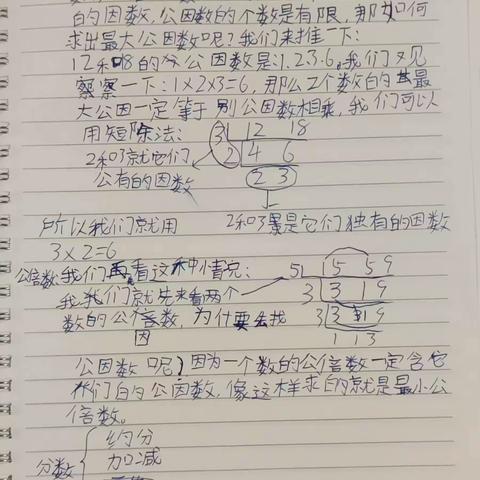 的因数,公因数的个数是有限,那如何
求出最大公因数呢?我们来推一下:
12和18的公因数是:1.2.3.6,我们
察一下:1×2×3=6,那么2个数的最
大公因一定等于别公因数相乘,我们可以
用短除法: 3 12 18
2和3就它们 2 4 6
公有的因数 2 3
所以我们就用 2和3是它们独有的因数
3×2=6
公倍数:我们再看这种情况: 5 15 59
我们就先来看两个 3 3 19
数的公倍数,为什要去找 3 3 19
因 1 13
公因数呢?因为一个数的公倍数一定含它
们的公因数,像这样求的就是最小公
倍数。
分数
约分
加减